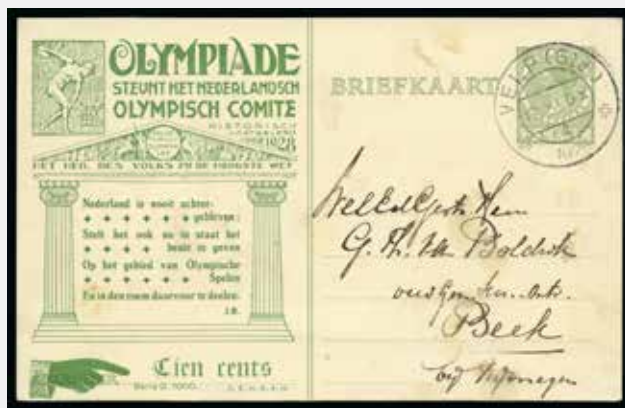 OLYMPIADE
STEUNT HET NEDERLANDSCH
OLYMPISCH COMITE
HISTORISCH
1928
HET HEIL DES VOLKS ZY DE HOOGSTE WET
Nederland is nooit achter-
gebleven;
Stelt het ook nu in staat het
beste te geven
Op het gebied van Olympische
Spelen
En in den roem daarvoor te deelen.
J.B.
Tien cents
Serie D. 1000.
BRIEFKAART
VELP (Gld.)
G. H. van
Beek
bij Nijmegen